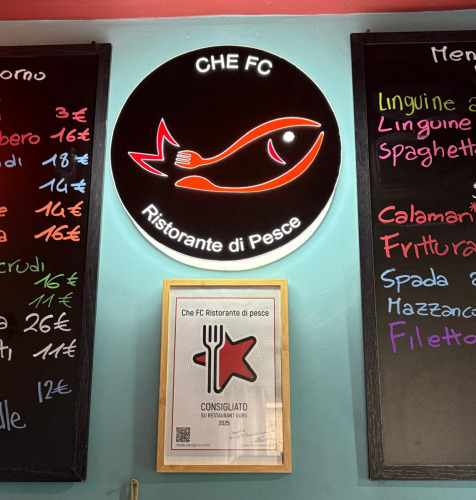 orno
3€
bero 16€
di 18€
14€
e 14€
a 16€
crudi
16€
11€
a 26€
ti 11€
12€
lle
CHE FC
Ristorante di Pesce
Che FC Ristorante di pesce
CONSIGLIATO
SU RESTAURANT GURU
2025
restaurantguru.com
Men
Linguine a
Linguine
Spaghett
Calamar
Frittura
Spada a
Mazzanco
Filetto